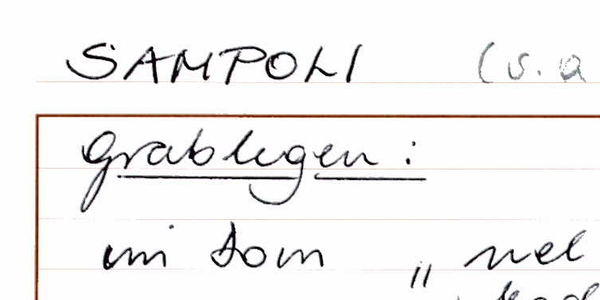 SAMPOLI (s.a
Grablegen:
im Dom „nel